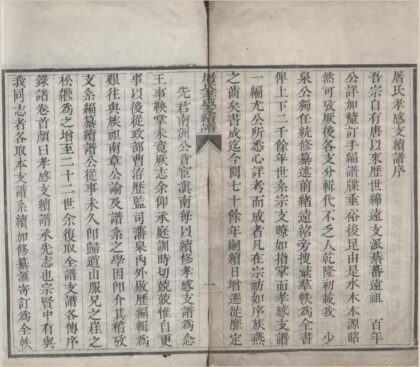 屠氏孝感支譜序
吾宗自有唐以來歷世綿遠支派蕃蕃遠祖 百年
公詳加釐訂手編譜牒垂裕後昆由是水木本源昭
然可攷厥後各支分輯代不乏人乾隆初載我 少
泉公獨任統修纂述前緒遠紹旁搜彙萃羣帙為全書
俾上下二千餘年世系宗支瞭如指掌而孝感支譜
一編尤公所悉心詳考而成者凡在宗祊如序族燕
之齒矣書成迄今閱七十餘年嗣續日增遷徙靡定
屠氏孝感續譜
一
先君南洲公首宦滇南每以續修孝感支譜為念
王事鞅掌未竟厥志余仰承庭訓時切兢兢惟自更
事以後從政部曹洊歷監司藩臬內外敭歷編輯為
艱往與族祖南章公論及譜系之學因即介其稽攷
支系編纂續譜公從事未久即歸道山服兄之桎之
松繼為之增至二十二世余復取全譜支譜各傳序
錄諸卷首顏曰孝感支續譜承先志也宗賢中有與
我同志者各取本支譜系續加修纂彙寄訂為全帙